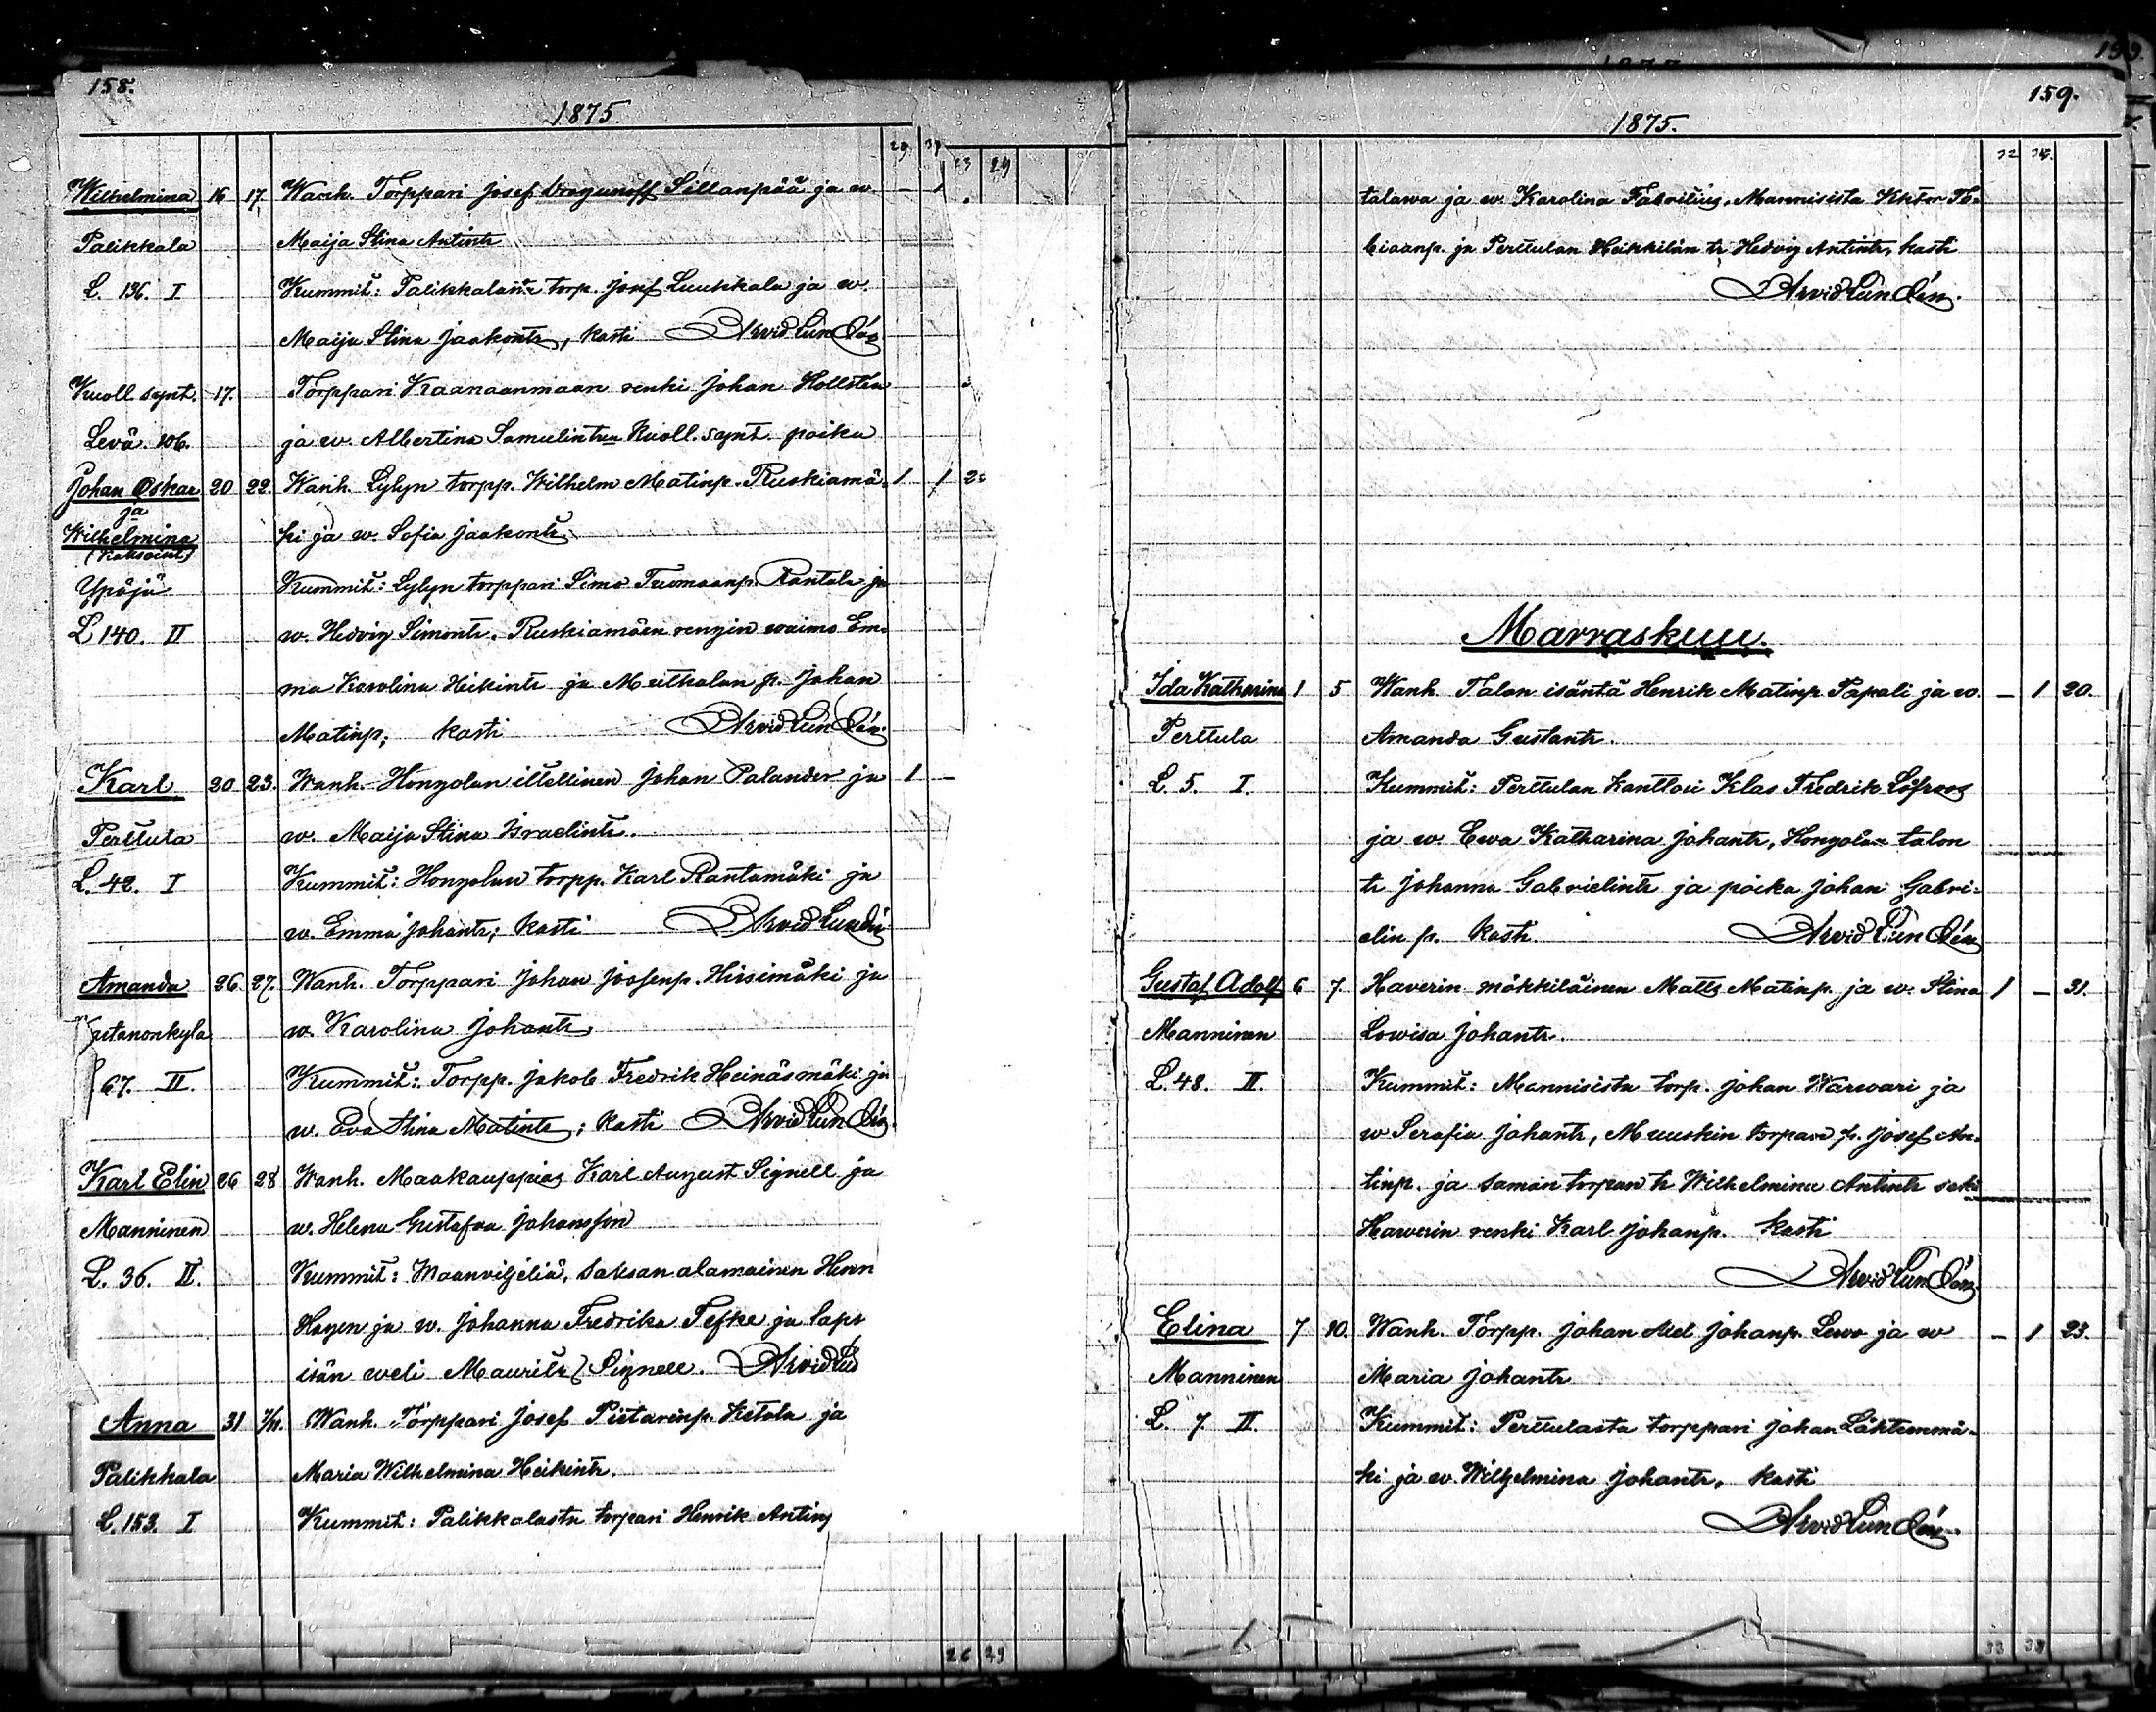 158.
1875.
29. 31 23 29
Wilhelmina 16 17. Wanh. Torppari Josef Dragunoff Sillanpää ja w. – 1
Palikkala Maija Stina Antintr
L. 136. I Kummit: Palikkalasta torp. Josef Luukkala ja w.
Maija Stina Jaakontr, kasti Arvid Lundén
Kuoll. synt. 17. Torppari Kaanaanmaan renki Johan Hollstén
Levä. 106. ja w. Albertina Samulintrn kuoll. synt. poika
Johan Oskar 20 22. Wanh. Lylyn torpp. Wilhelm Matinp. Ruskiamä- 1 1
ja
Wilhelmina ki ja w. Sofia Jaakontr.
(Kaksoiset)
Ypäjä Kummit: Lylyn torppari Simo Tuomaanp. Rantala ja
L 140. II w. Hedvig Simontr. Ruskiamäen rengin waimo Em-
ma Karolina Heikintr ja Mutkalan p. Johan
Matinp; kasti Arvid Lundén.
Karl 20 23. Wanh. Hongolan itsellinen Johan Palander ja 1 –
Perttula w. Maija Stina Israelintr.
L. 42. I Kummit: Hongolan torpp. Karl Rantamäki ja
w. Emma Johantr; kasti Arvid Lundén
Amanda 26. 27. Wanh. Torppari Johan Joosenp. Hirsimäki ja
w. Karolina Johantr
67. II. Kummit: Torpp. Jakob Fredrik Heinäsmäki ja
w. Eva Stina Matintr; kasti Arvid Lundén.
Karl Elin 26 28 Wanh. Maakauppias Karl August Signell ja
Manninen w. Helena Gustafva Johansson
L. 36. II. Kummit: Maanviljeliä, Saksan alamainen Henn
Hagen ja w. Johanna Fredrika Tefke ja laps
isän weli Maurits Signell. Arvid Lu
Anna 31 7/11. Wanh. Torppari Josef Pietarinp. Ketola ja
Palikkala Maria Wilhelmina Heikintr.
L. 153. I Kummit: Palikkalasta torpari Henrik Antinp
26 29
159.
1875.
32 34.
talawa ja w. Karolina Fabritius, Mannisista Viktor To-
biaanp. ja Perttulan Heikkilän tr Hedvig Antintr, kasti
Arvid Lundén.
Marraskuu.
Ida Katharina 1 5 Wanh. Talon isäntä Henrik Matinp. Papali ja w. – 1 20.
Perttula Amanda Gustantr.
L. 5. I. Kummit: Perttulan kanttori Klas Fredrik Löfroos
ja w. Ewa Katharina Johantr, Hongolan talon
tr Johanna Gabrielintr ja poika Johan Gabri-
elin p. kasti. Arvid Lundén
Gustaf Adolf 6 7. Haverin mökkiläinen Matts Matinp. ja w. Stina 1 – 31.
Manninen Lowisa Johantr.
L. 48. II. Kummit: Mannisista torp. Johan Warwari ja
w Serafia Johantr, Muuskin torpan p. Josef An-
tinp. ja saman torpan tr Wilhelmina Antintr sekä
Hawerin renki Karl Johanp. kasti
Arvid Lundén
Elina 7 10. Wanh. Torpp. Johan Abel Johanp. Lewo ja w – 1 23.
Manninen Maria Johantr
L. 7. II. Kummit: Perttulasta torppari Johan Lähteenmä-
ki ja w. Wilhelmina Johantr, kasti
Arvid Lundén.
33 33